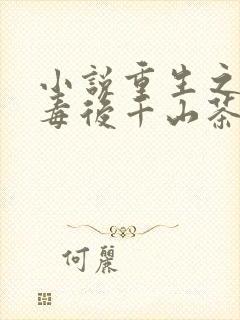 小説重生之
毒後千山茶
何麗